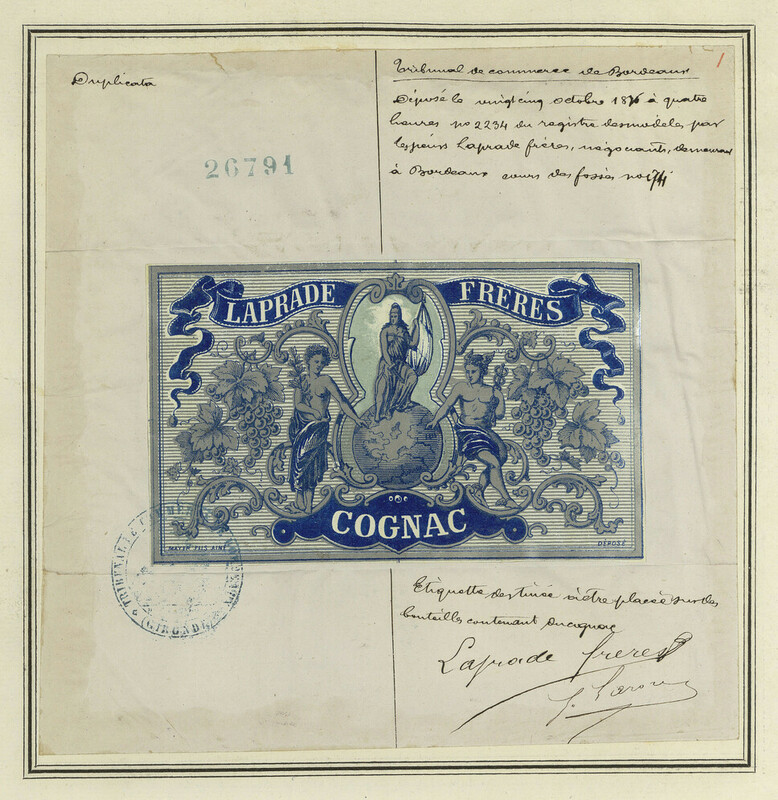 Duplicata
26791
Tribunal de commerce de Bordeaux
Déposé le vingt cinq octobre 1876 à quatre
heures no 2234 du registre des modèles par
les sieurs Laprade frères, négociants, demeurant
à Bordeaux cours des fossés no
LAPRADE FRERES
COGNAC
DÉPOSÉ
TRIBUNAL DE
(GIRONDE)
Etiquette destinée à être placée sur des
bouteilles contenant du cognac
Laprade freres